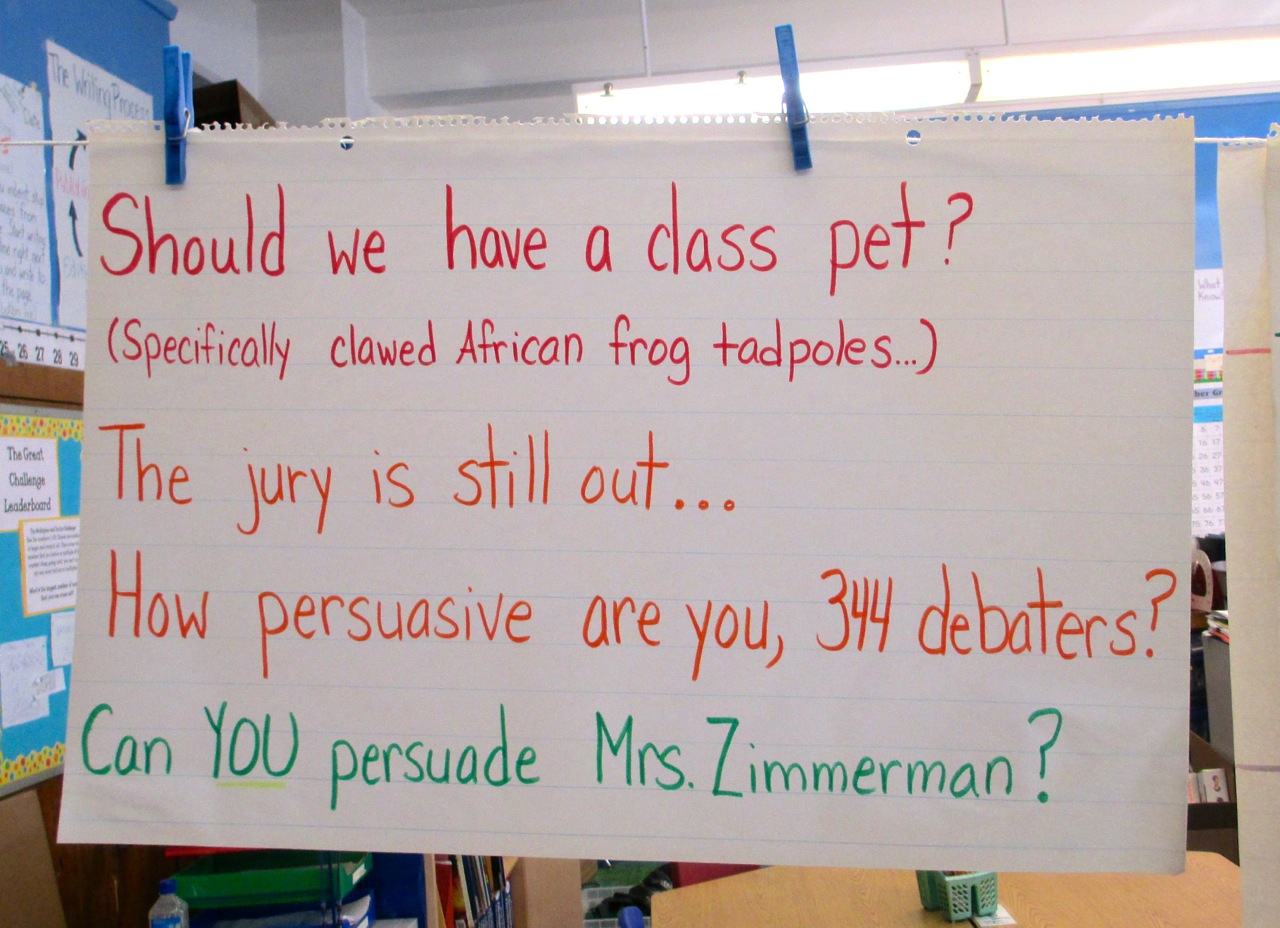 Should we have a class pet?
(Specifically clawed African frog tadpoles...)
The jury is still out...
How persuasive are you, 344 debaters?
Can YOU persuade Mrs. Zimmerman?
The Writing Process
25 26 27 28 29
The Great
Challenge
Leaderboard
What